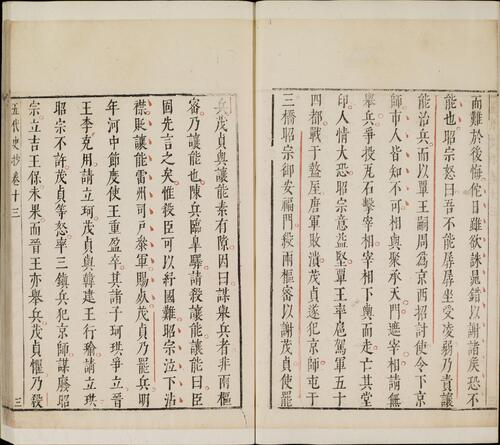 而難於後悔佗日雖欲誅晁錯以謝諸侯恐不
能也昭宗怒曰吾不能孱孱坐受凌弱乃責讓
能治兵而以覃王嗣周為京西招討使令下京
師市人皆知不可相與聚承天門遮宰相請無
舉兵爭投瓦石擊宰相宰相下輿而走亡其堂
印人情大恐昭宗意益堅覃王率扈駕軍五十
四都戰于盩厔唐軍敗潰茂貞遂犯京師屯于
三橋昭宗御安福門殺兩樞密以謝茂貞使罷
兵茂貞與讓能素有隙因曰謀舉兵者非兩樞
密乃讓能也陳兵臨皐驛請殺讓能讓能曰臣
固先言之矣惟殺臣可以紓國難昭宗泣下沾
襟貶讓能雷州司戶參軍賜死茂貞乃罷兵明
年河中節度使王重盈卒其諸子珂珙爭立晉
王李克用請立珂茂貞與韓建王行瑜請立珙
昭宗不許茂貞等怒率三鎮兵犯京師謀廢昭
宗立吉王保未果而晉王亦舉兵茂貞懼乃殺
五代史抄卷十三 三